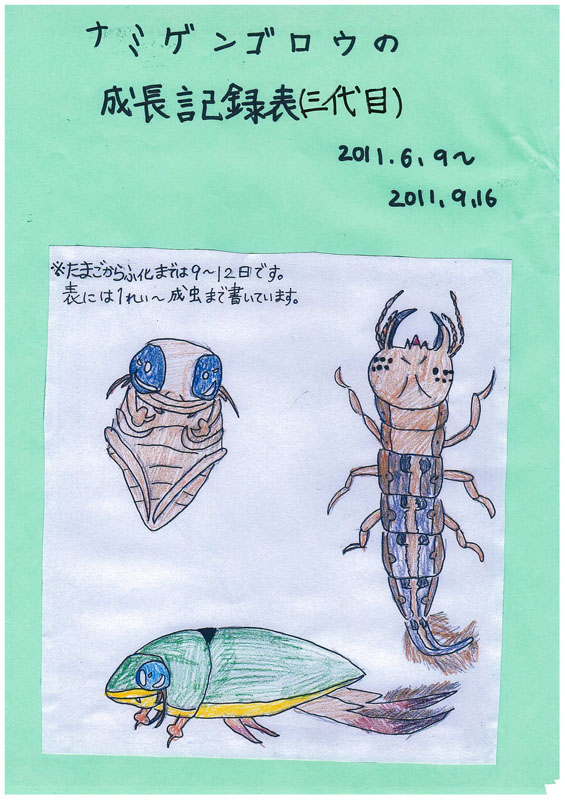 ナミゲンゴロウの
成長記録表(三代目)
2011.6.9～
2011.9.16
※たまごからふ化までは9～12日です。
表には1れい～成虫まで書いています。